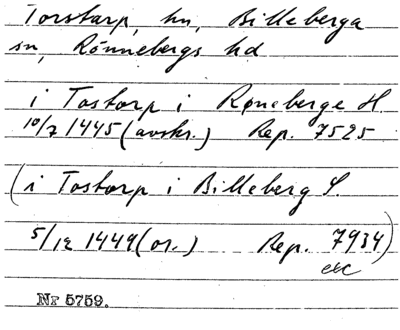 Torstarp, hn, Billeberga
sn, Rönnebergs hd
i Tostorp i Røneberge H.
10/7 1445 (avskr.) Rep. 7525
(i Tostorp i Billeberg S.
5/12 1449 (or.) Rep. 7934)
etc
Nr 5759.